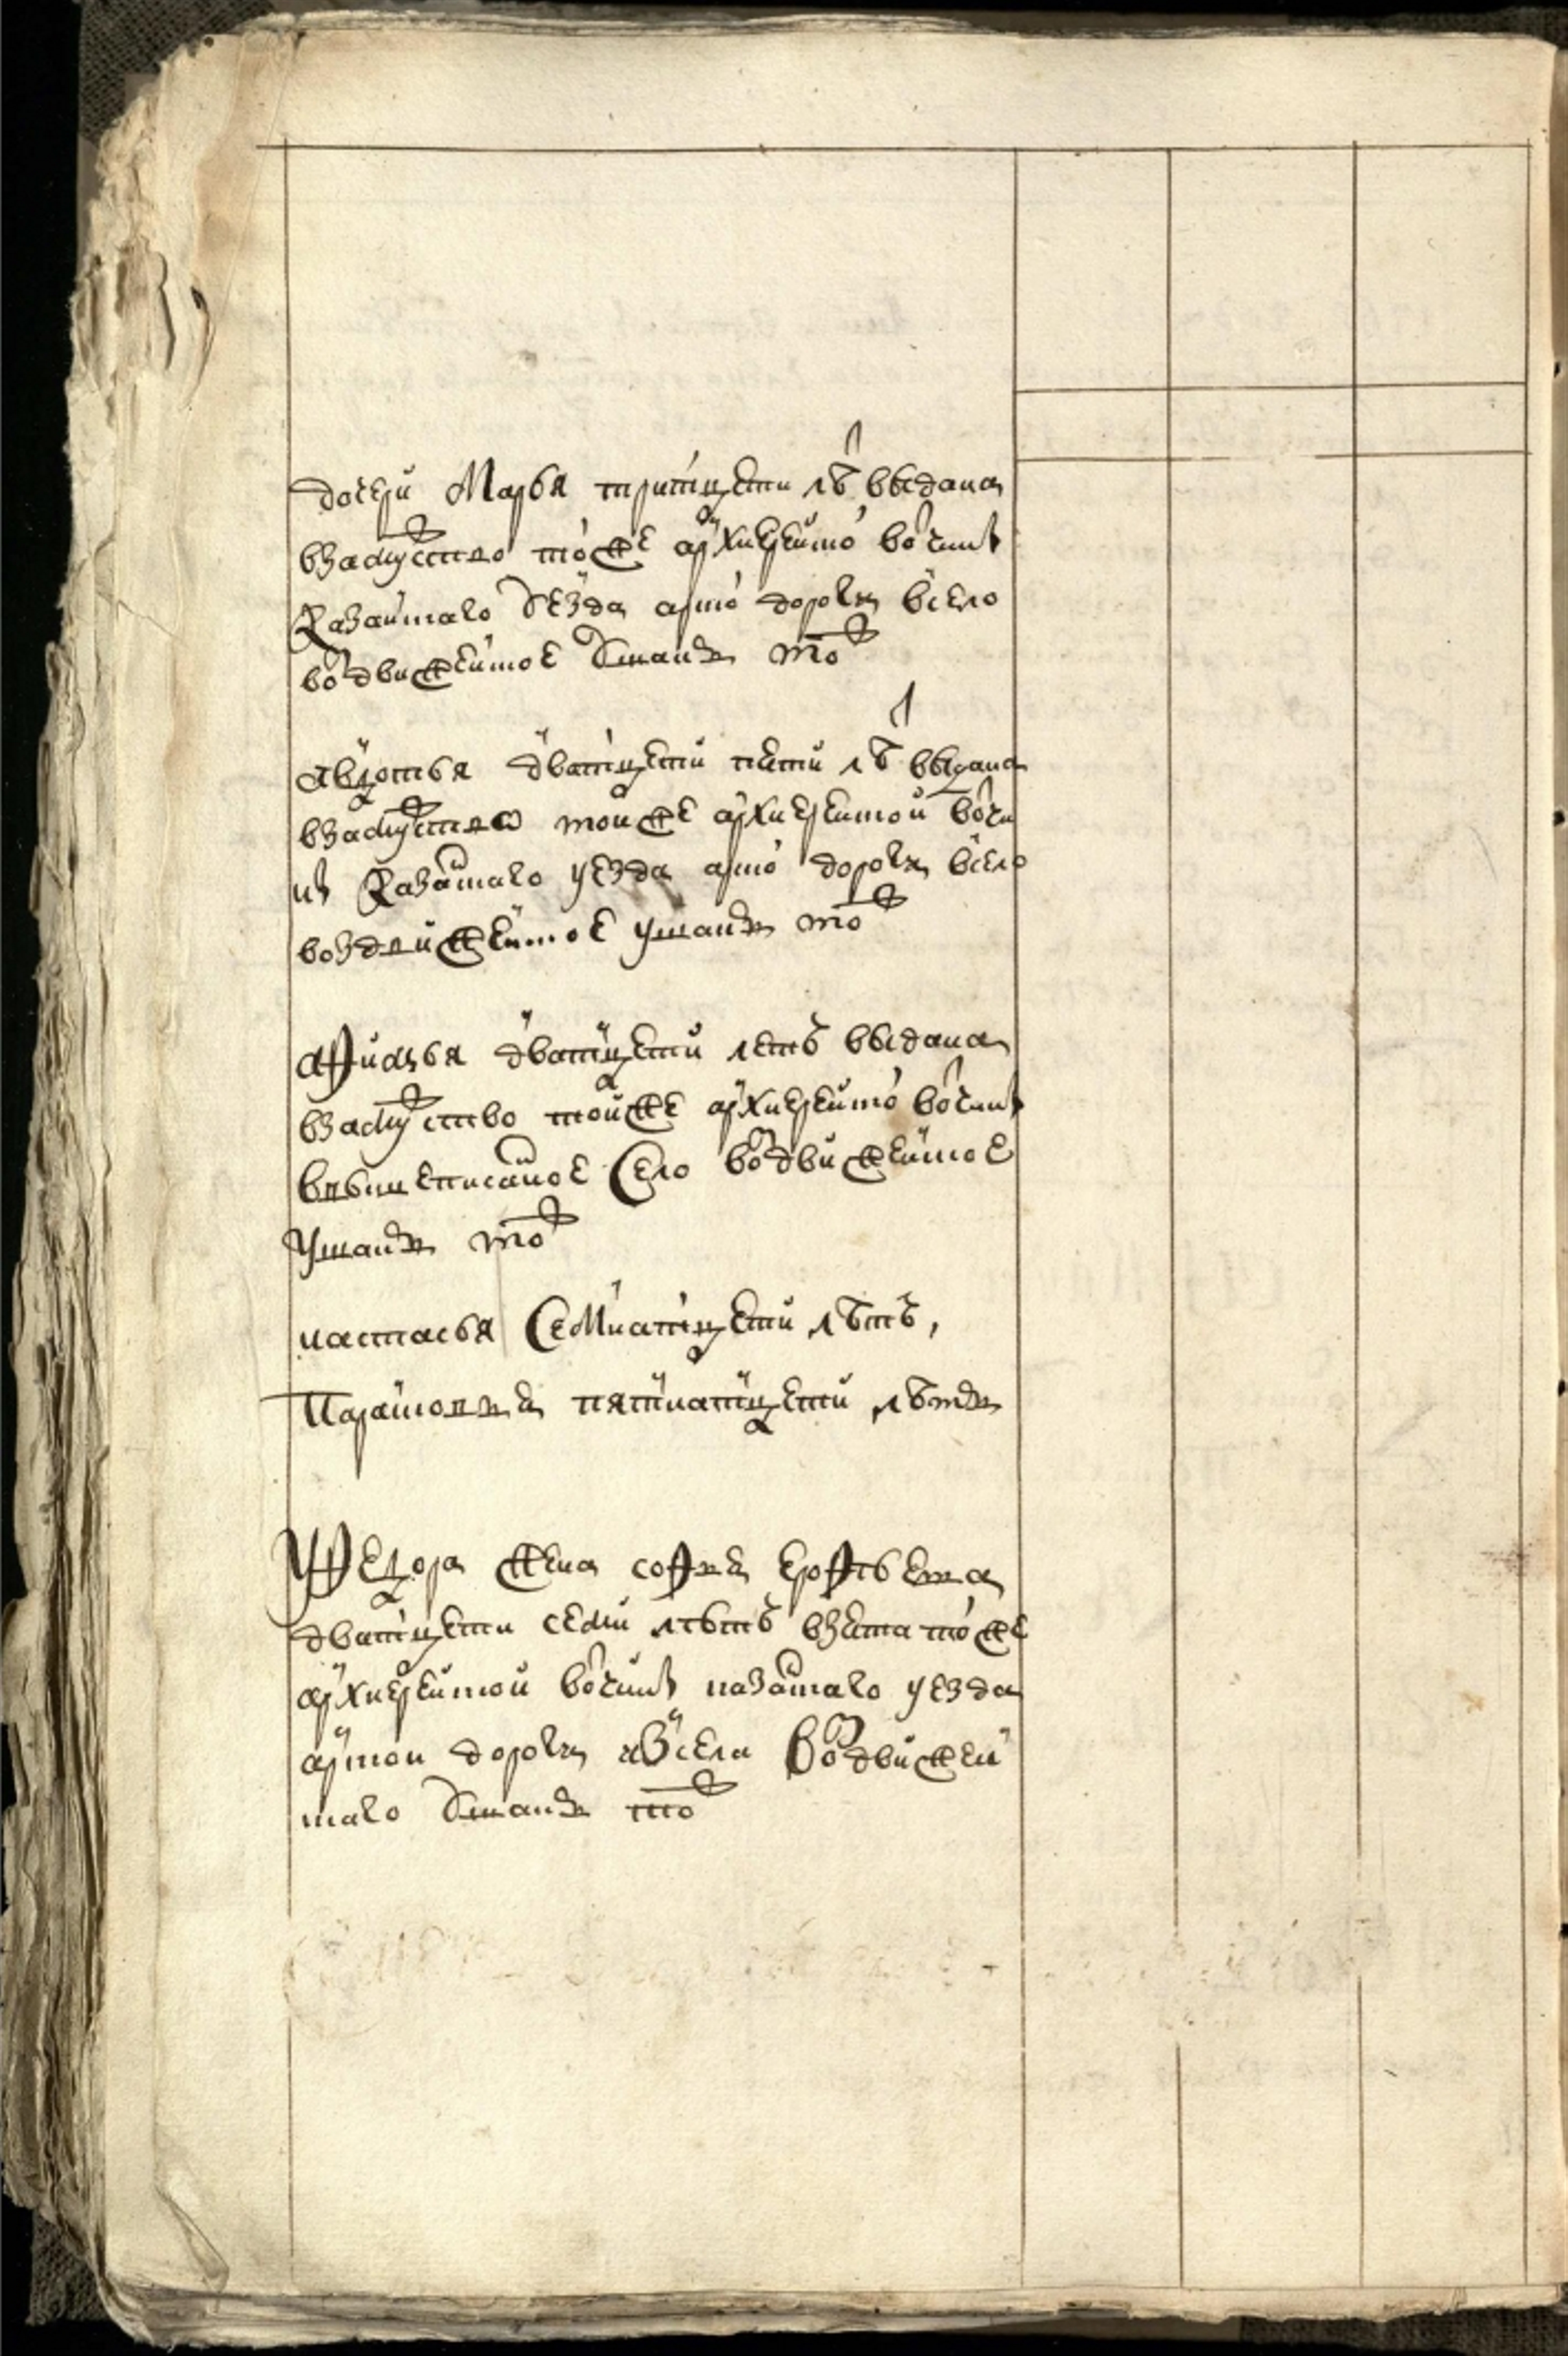 дочери Марья тритцети лѣт выдана
взамужство тойже архиерейской вотчины
Казанскаго уезда арской дороги всело
воздвиженское Ушанки тож
авдотья дватцети пети лѣт выдана
взамужство тойже архиерейской вотчи
ны Казанскаго уезда арской дороги всело
воздвиженское ушанки тож
афимья дватцети летъ выдана
взамужство тойже архиерейской вотчины
вышеписанное Село воздвиженское
Ушанки тож
настасья Семнатцети лѣтъ,
Парасковья пятнатцети лѣтъ
У Федора жена софья ерофѣева
дватцети седми лѣтъ взета тойже
архиерейской вотчины казанскаго уезда
арской дороги изсела Воздвижен
скаго Ушанки тож